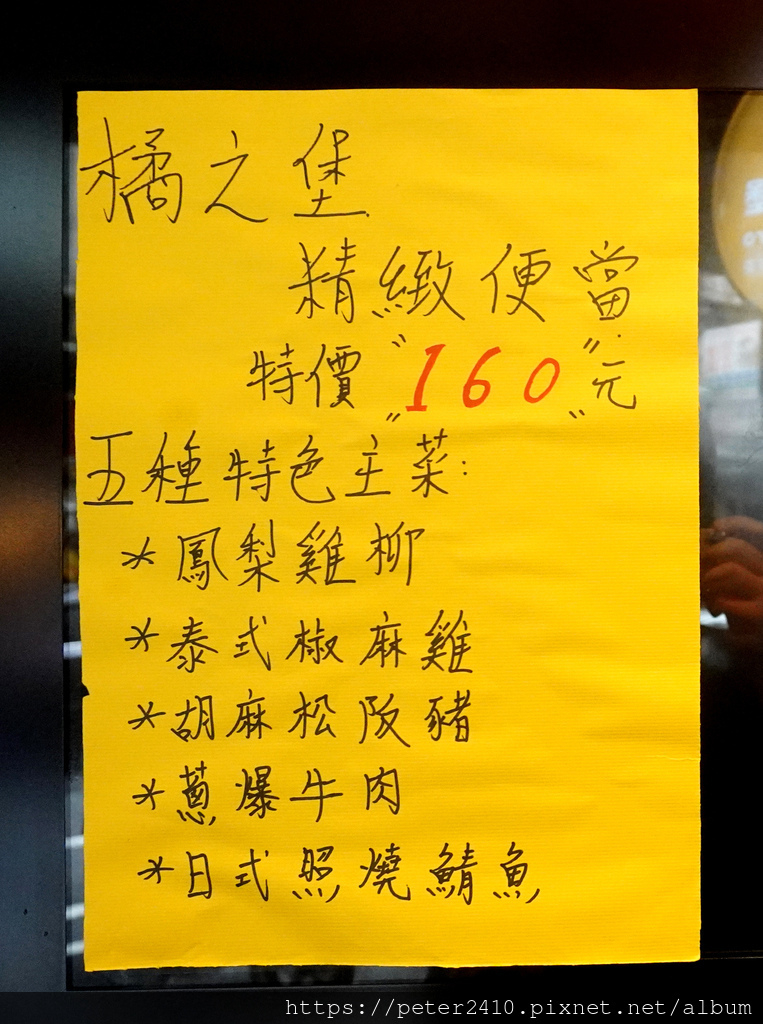 橘之堡
精緻便當
特價"160"元
五種特色主菜:
*鳳梨雞柳
*泰式椒麻雞
*胡麻松阪豬
*蔥爆牛肉
*日式照燒鯖魚
https://peter2410.pixnet.net/album